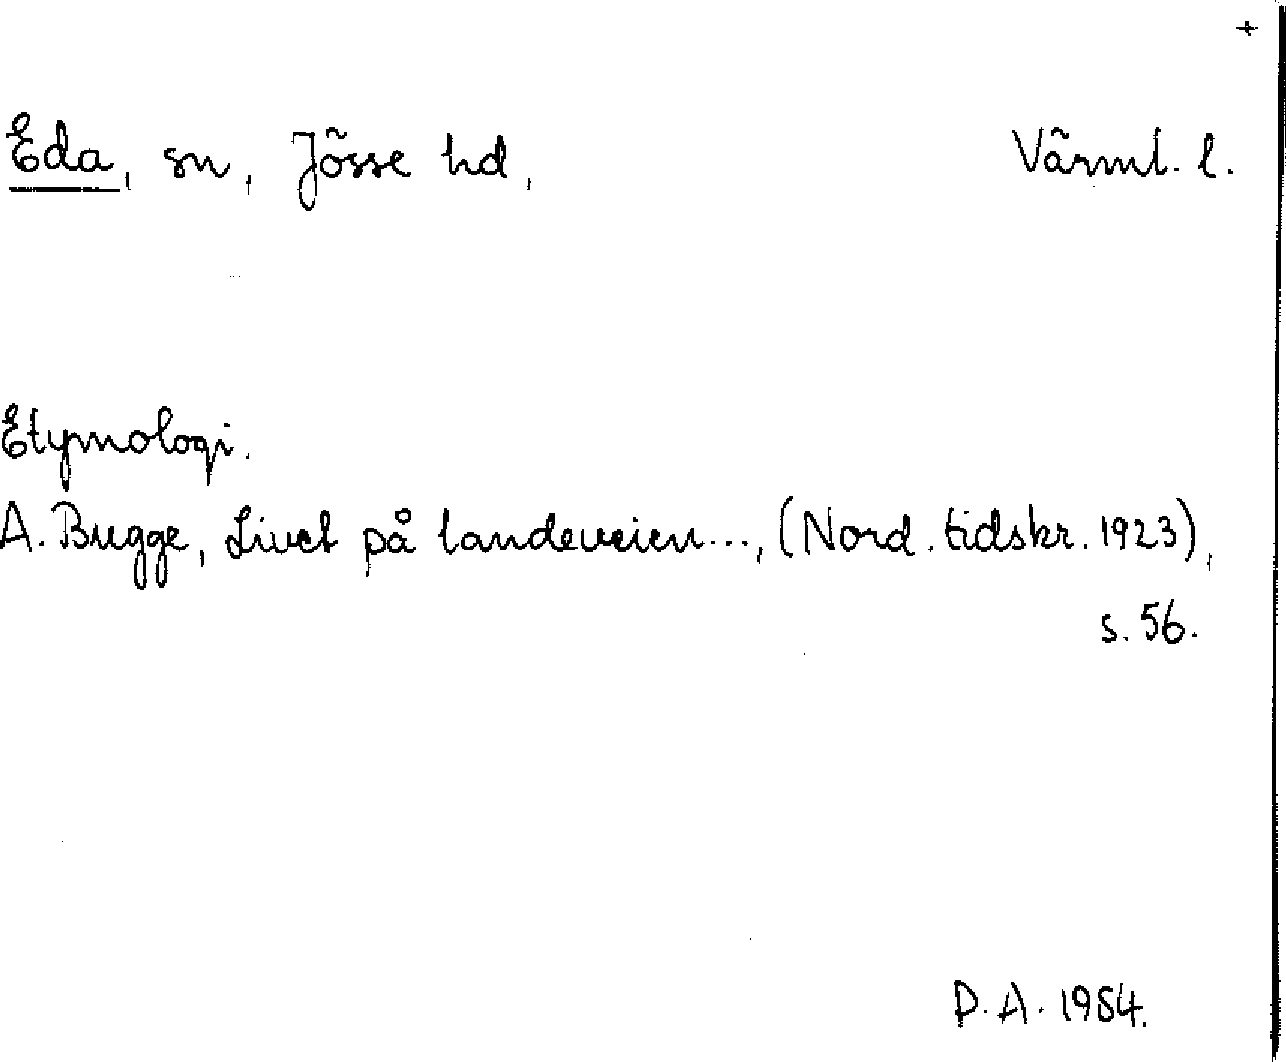 +
Eda, sn, Jösse hd, Värml. l.
Etymologi.
A. Bugge, Livet på landeveien..., (Nord. tidskr. 1923),
s. 56.
D. A. 1984.